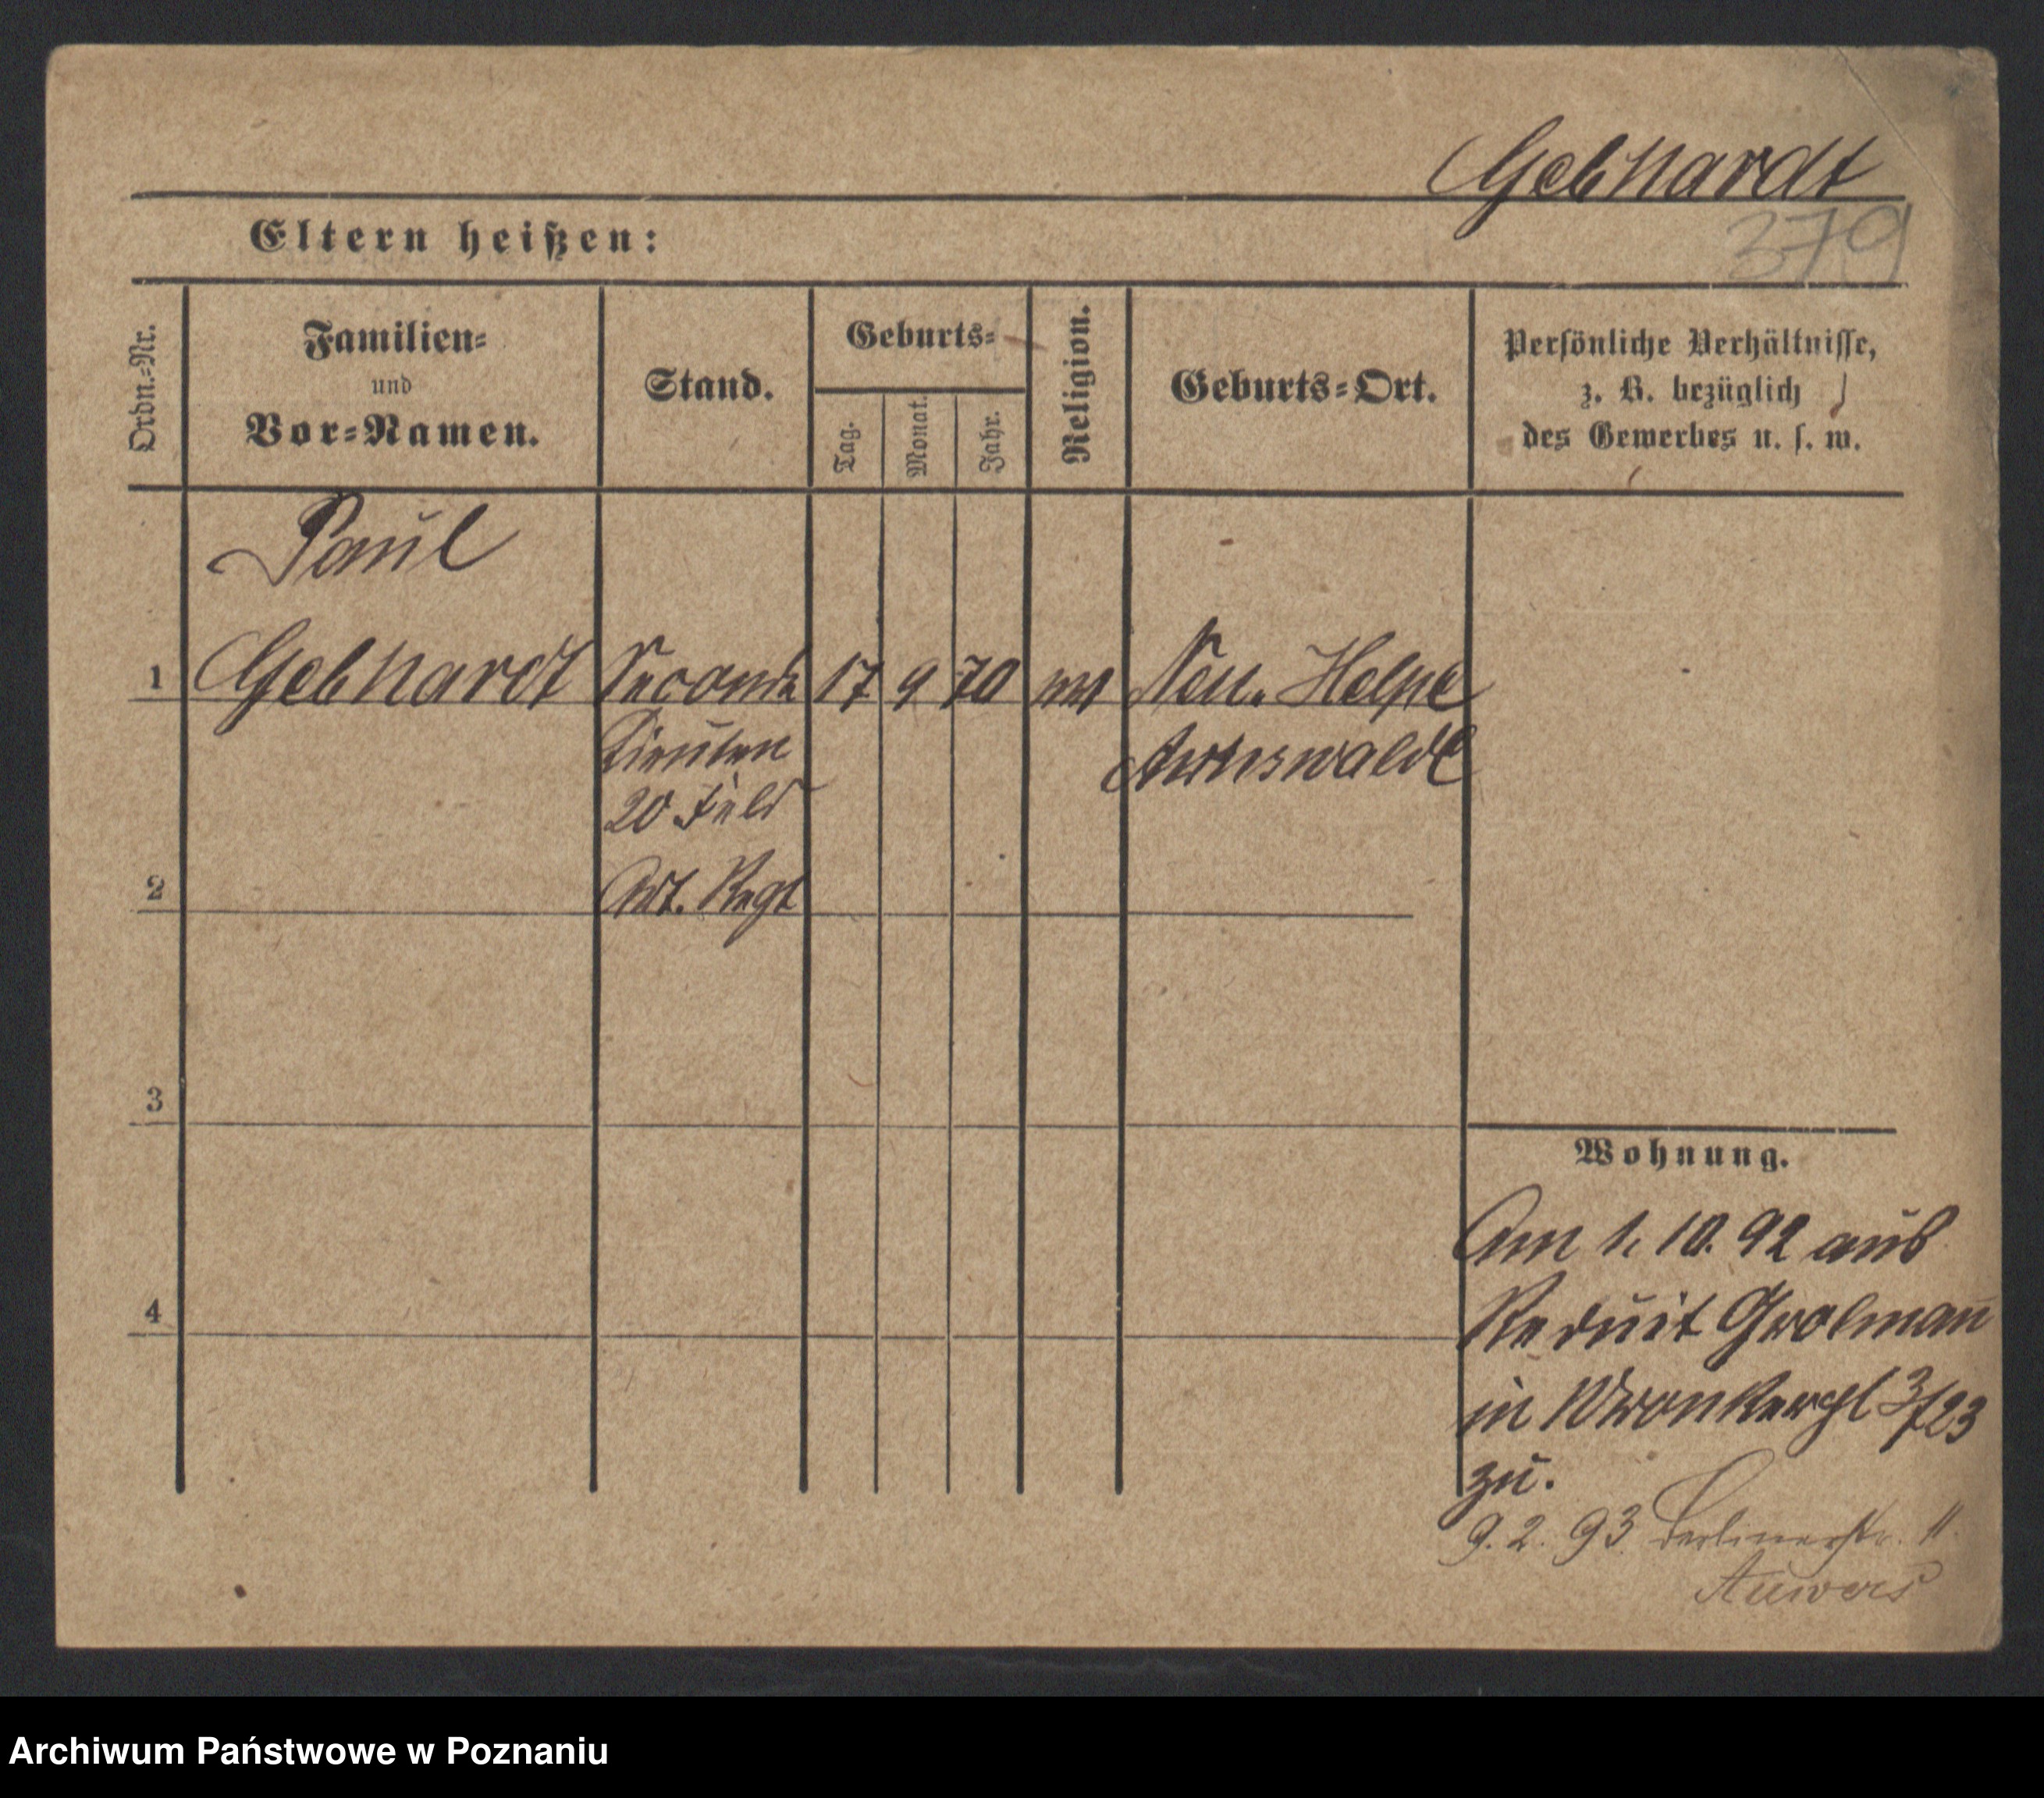 Gebhardt
379
Eltern heißen:
Ordn.-Nr.
Familien-
und
Vor-Namen.
Stand.
Geburts-
Tag.
Monat.
Jahr.
Religion.
Geburts-Ort.
Persönliche Verhältnisse,
z. B. bezüglich
des Gewerbes u. s. w.
Paul
1 Gebhardt Seconde 17 9 70 Neu. Helpe
Lieuten Arnswalde
20 Feld
2 Art. Regt
3
Wohnung.
Am 1. 10. 92 aus
4 Reduit Grolman
in Wronkerpl 3/23
zu.
9. 2. 93 Berlinerstr. 11
Auwers
Archiwum Państwowe w Poznaniu